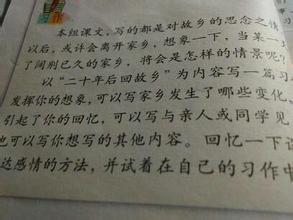 本组课文,写的都是对故乡的思念之情
以后,或许会离开家乡,想象一下,当某一
了阔别已久的家乡,将会是怎样的情景呢?
以“二十年后回故乡”为内容写一篇习
发挥你的想象,可以写家乡发生了哪些变化
引起了你的回忆,可以写与亲人或同学见
也可以写你想写的其他内容。回忆一下
达感情的方法,并试着在自己的习作中